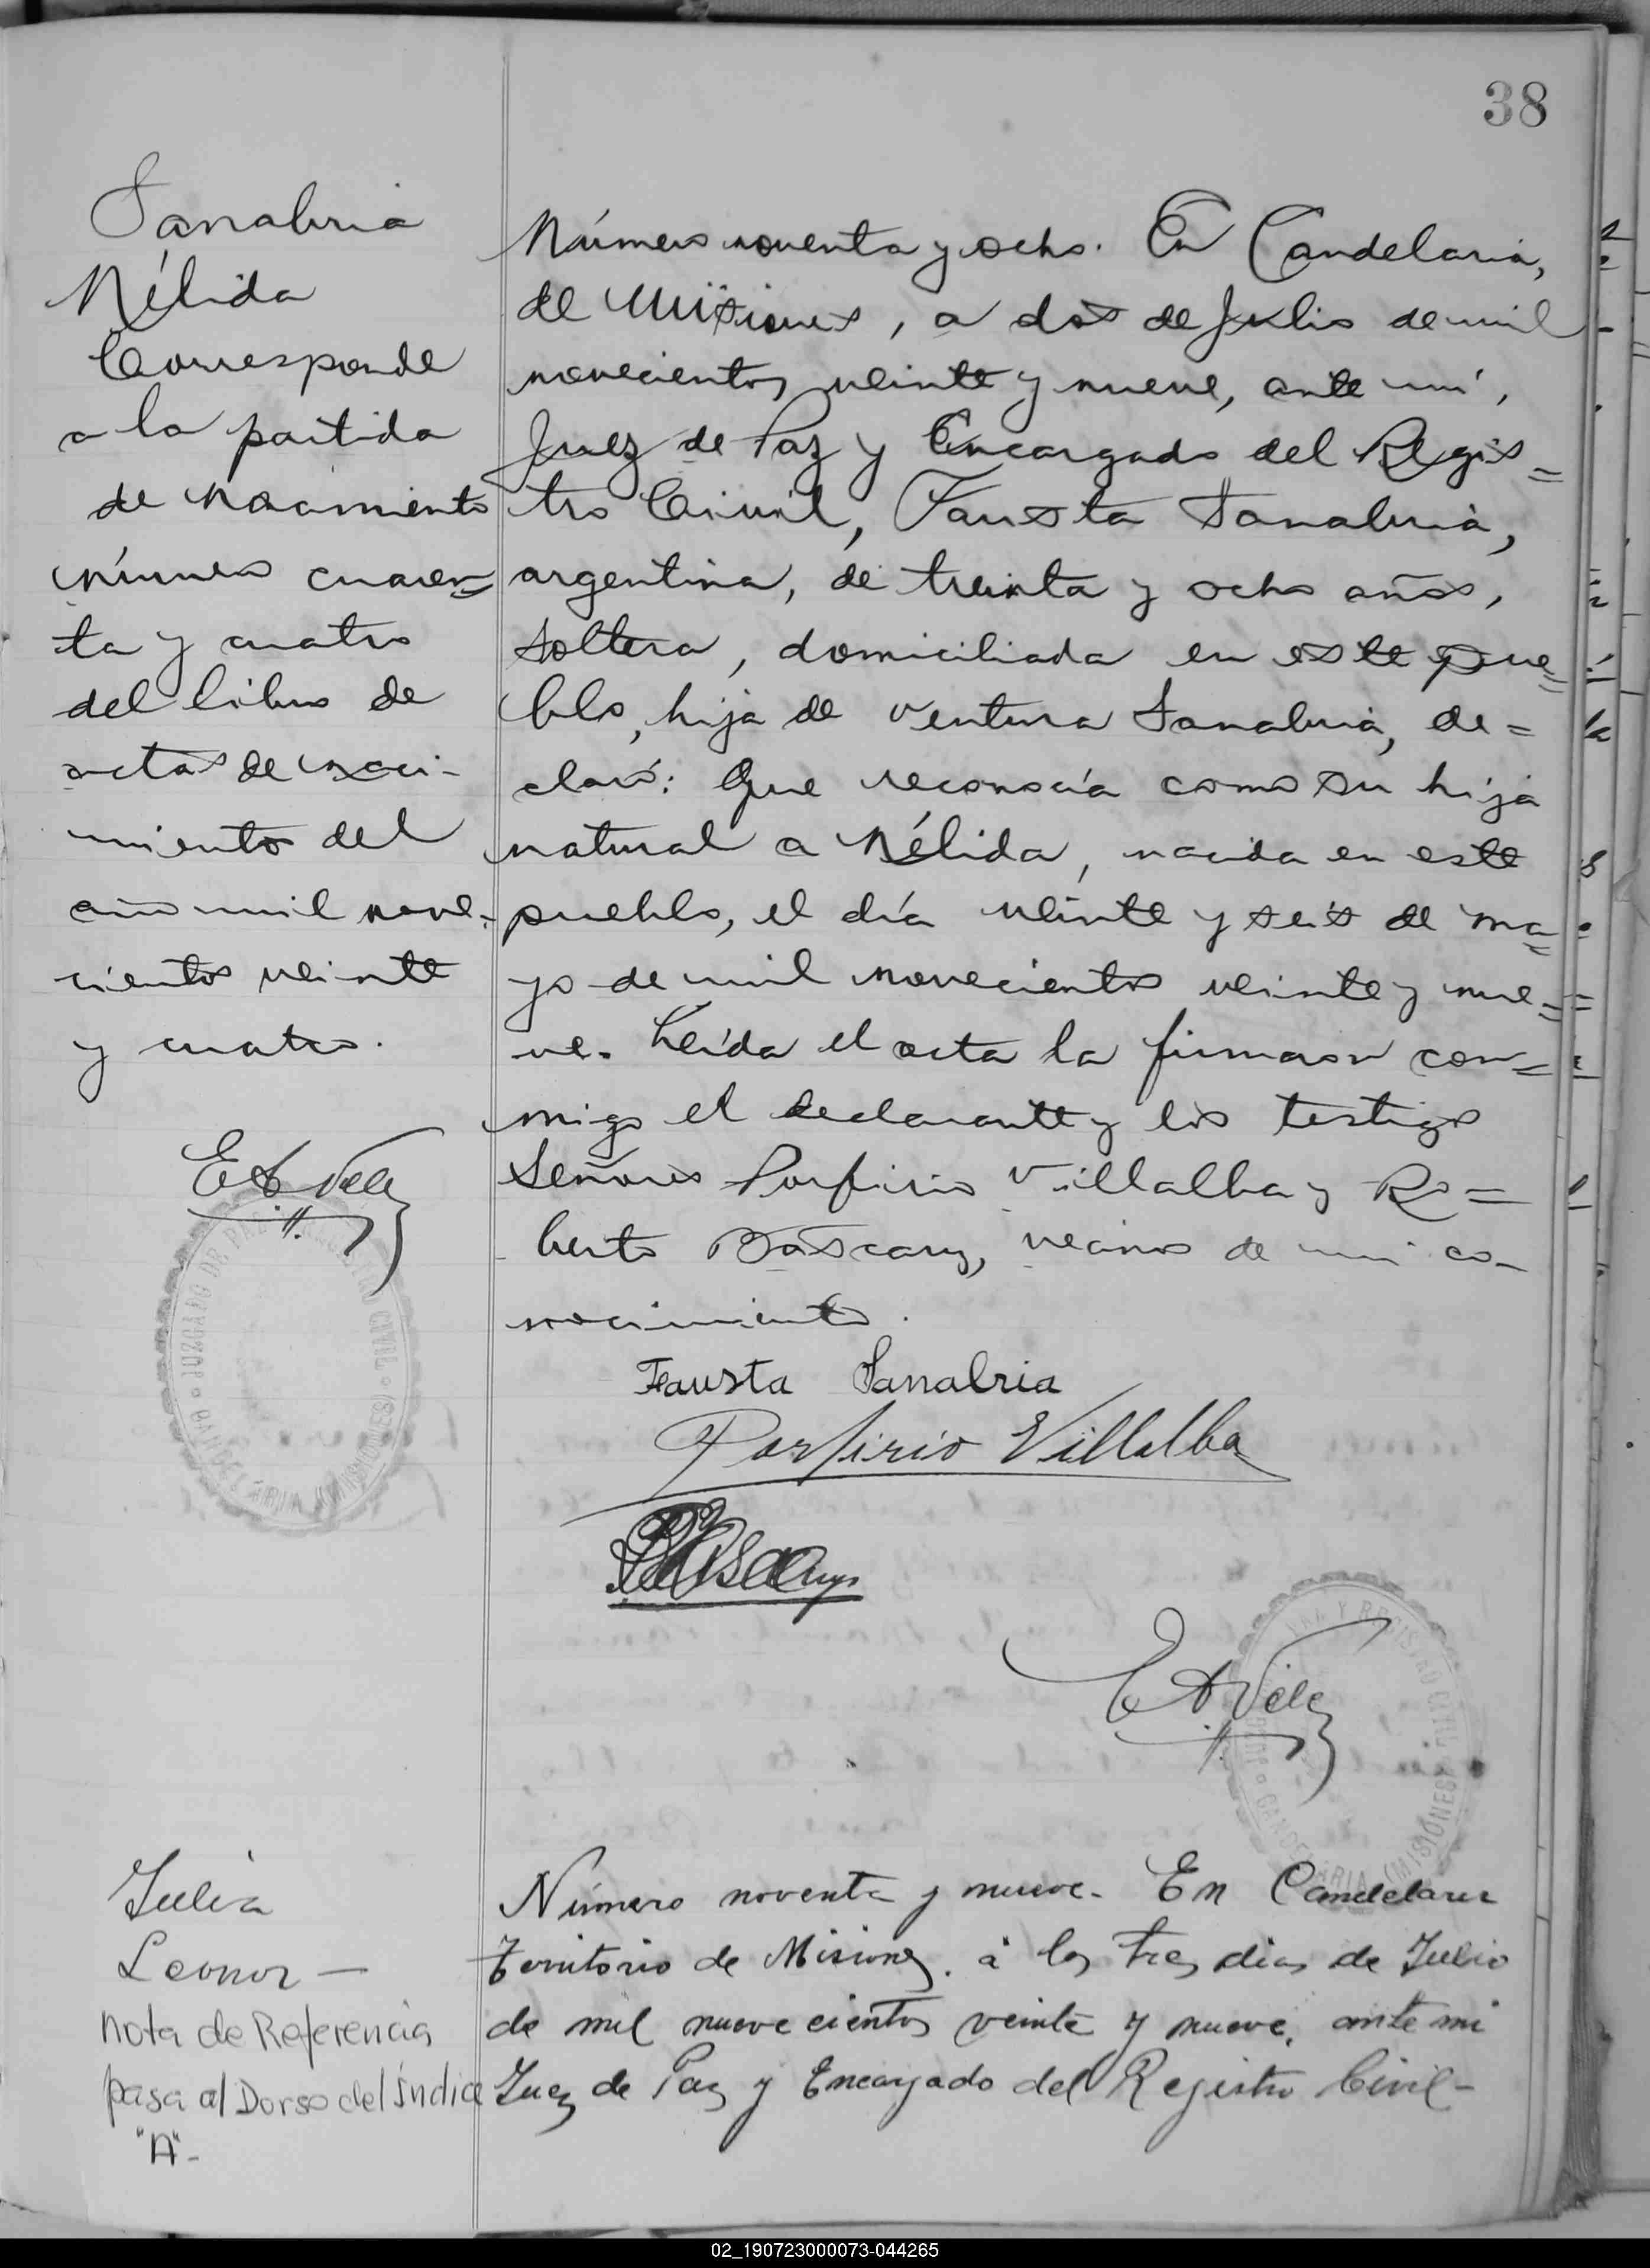 38
Sanabria
Nélida
Corresponde
a la partida
de nacimiento
número cuaren=
ta y cuatro
del libro de
actas de naci-
miento del
año mil nove-
cientos veinte
y cuatro.
E A Vele
JUZGADO DE PAZ Y REGISTRO CIVIL
CANDELARIA (MISIONES)
Número noventa y ocho. En Candelaria,
de Misiones, a dos de Julio de mil
novecientos veinte y nueve, ante mí,
Juez de Paz y Encargado del Regis=
tro Civil, Fausta Sanabria,
argentina, de treinta y ocho años,
soltera, domiciliada en este pue=
blo, hija de Ventura Sanabria, de=
claró: Que reconocía como su hija
natural a Nélida, nacida en este
pueblo, el día veinte y seis de ma=
yo de mil novecientos veinte y nue=
ve. Leída el acta la firmaron con=
migo el declarante y los testigos
Señores Porfirio Villalba y Ro=
berto Báscary, vecinos de mi co-
nocimiento.
Fausta Sanabria
Porfirio Villalba
RBáscary
E A Vele
PAZ Y REGISTRO CIVIL
CANDELARIA (MISIONES)
Julia
Leonor —
nota de Referencia
pasa al Dorso del índice
"A"-
Número noventa y nueve. En Candelaria
Territorio de Misiones. á los tres dias de Julio
de mil nueve cientos veinte y nueve, ante mi
Juez de Paz y Encargado del Registro Civil-
02_190723000073-044265